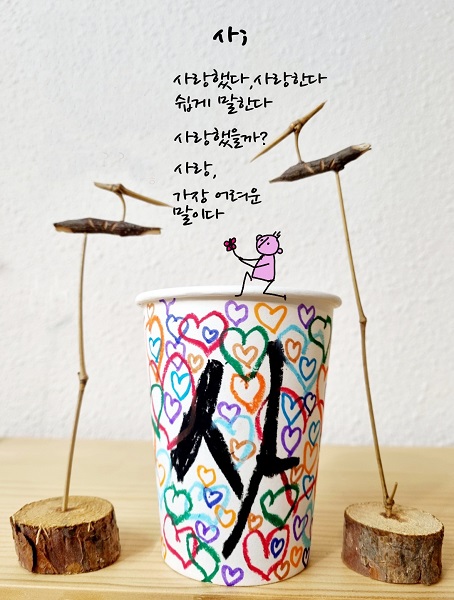 사;
사랑했다, 사랑한다
쉽게 말한다
사랑했을까?
사랑,
가장 어려운
말이다
사